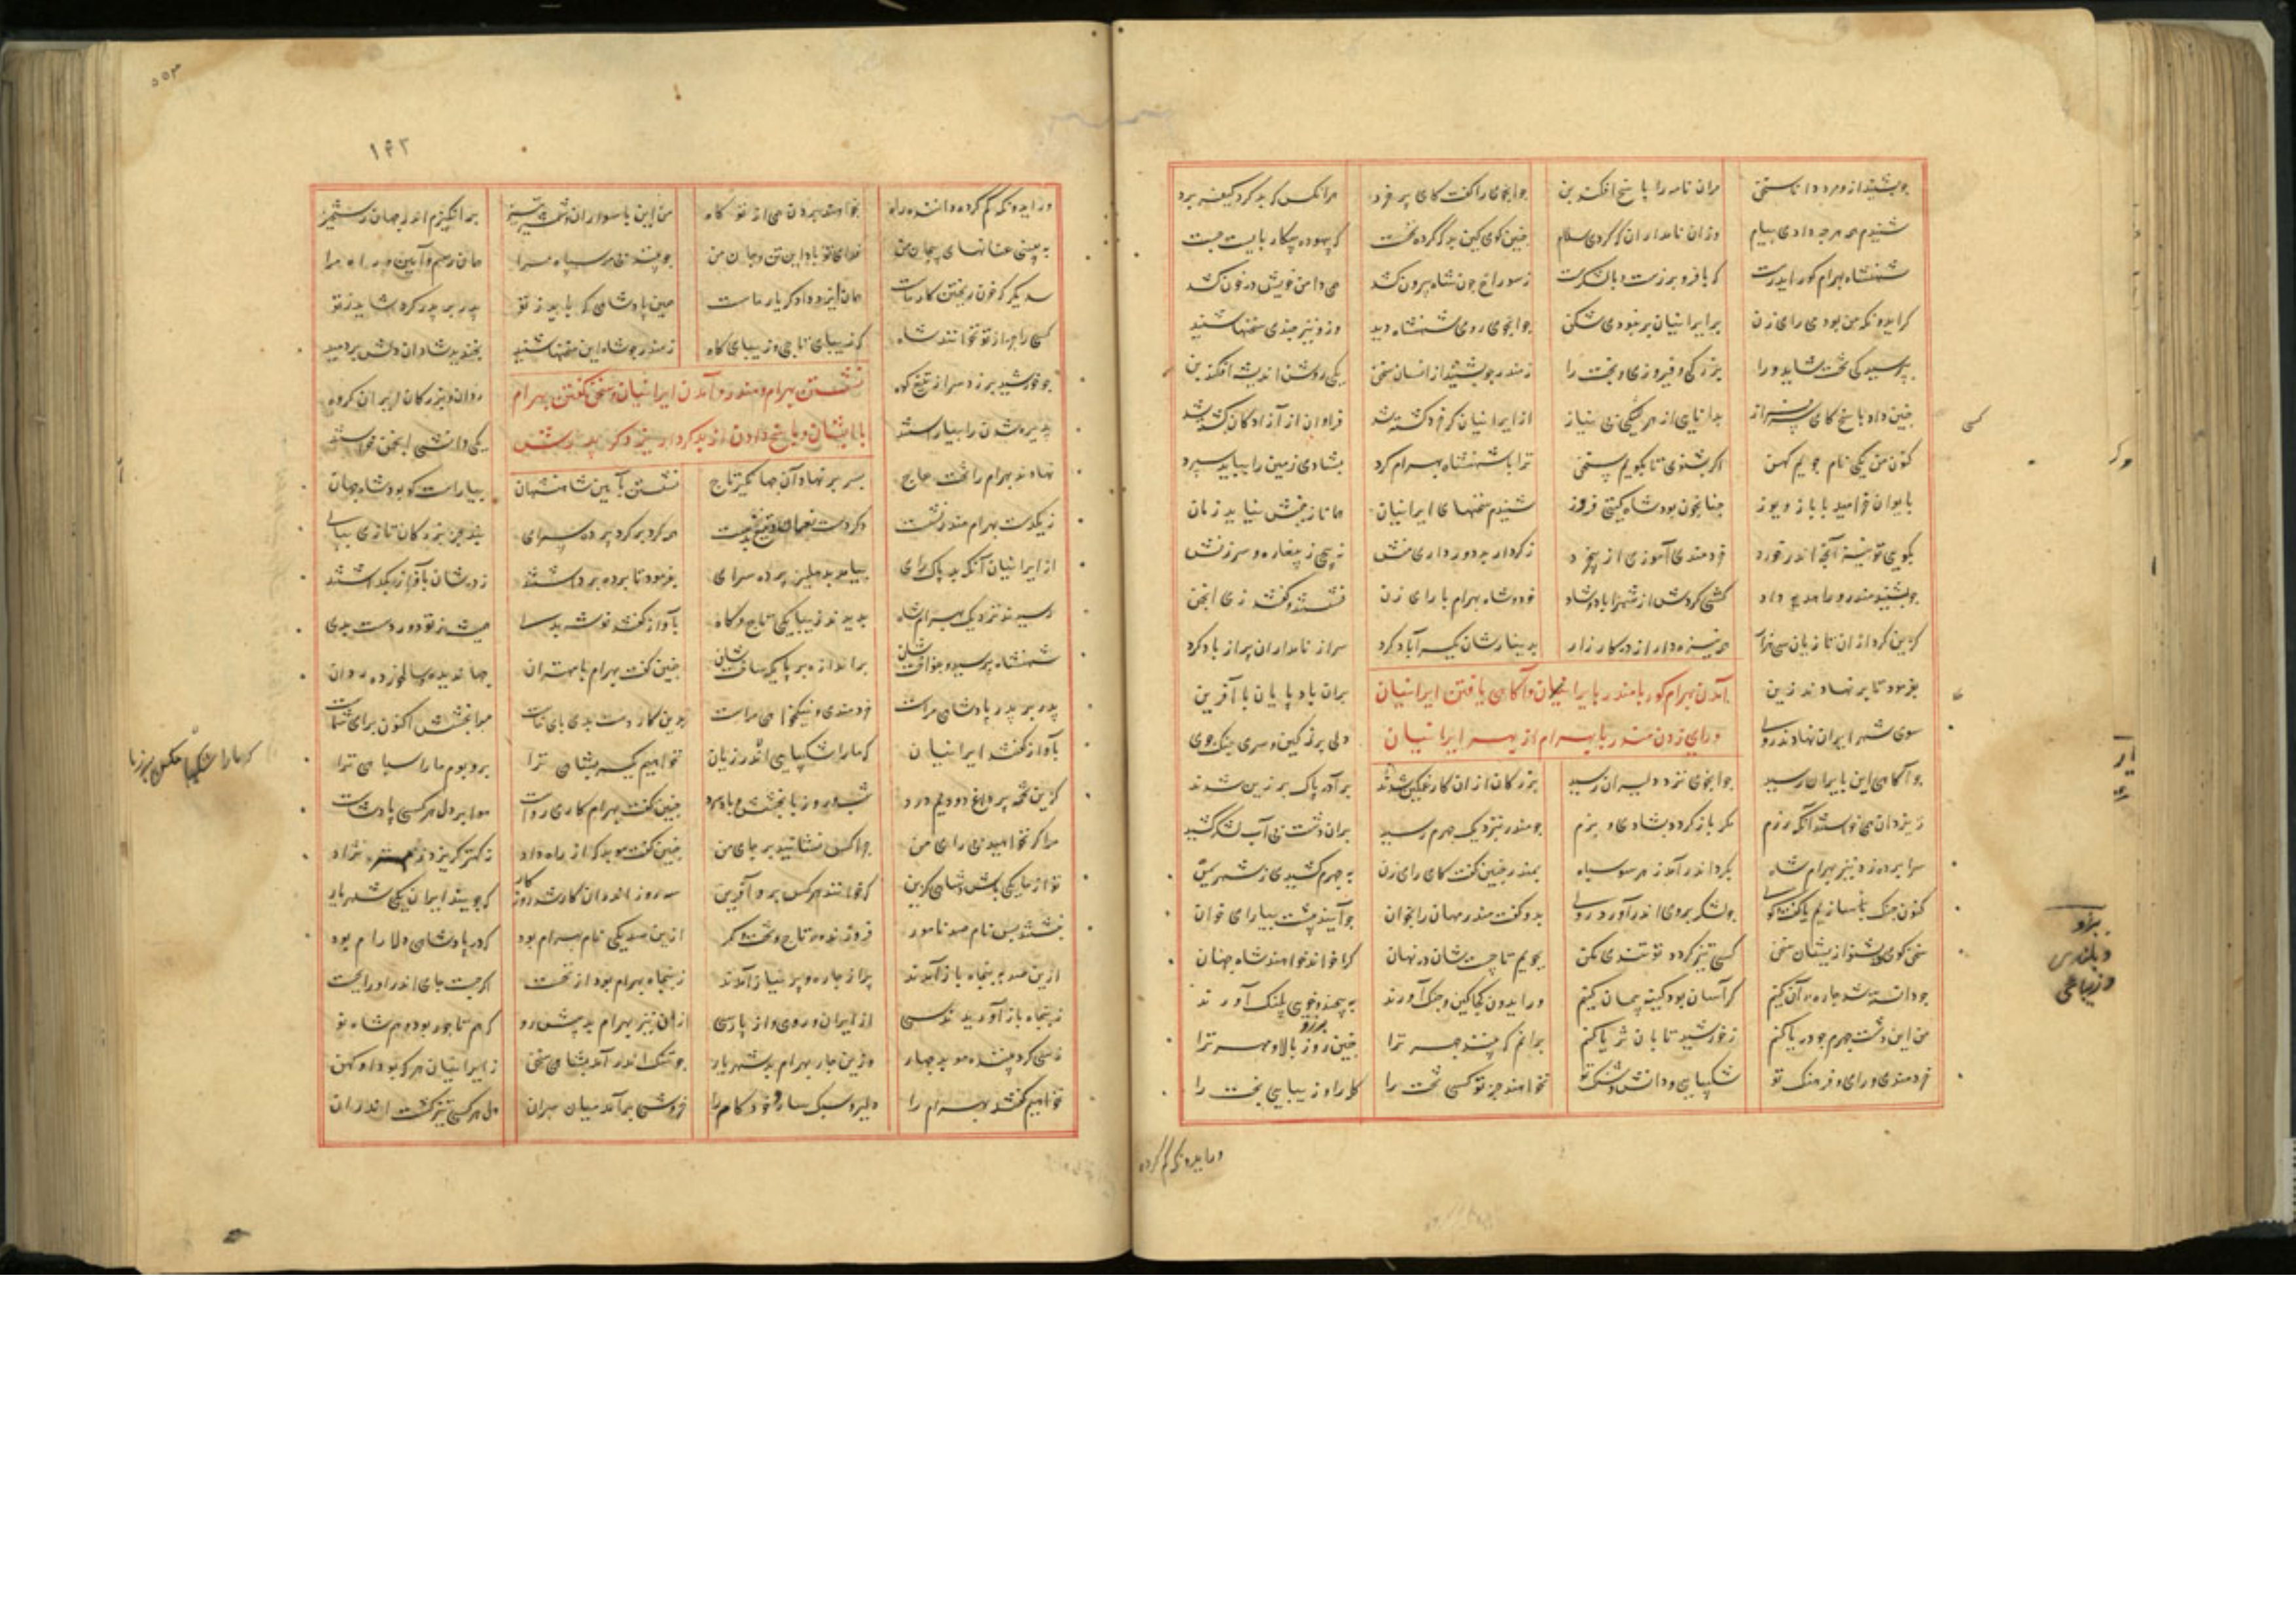 جو بشنید ازو مرد دانا سخن مران نامه را پاسخ افکند بن جوانجوی را گفت کای پر خرد هرانکس که بد کرد کیفر برد
شنیدم همه هرچه دادی پیام وزان نامداران که کردی سلام چنین گوی کین بد که گرد نخست که بیهوده پیکار بایست جست
شهنشاه بهرام گور ایدرست که با فر و برزست و با لشکرست ز سوراخ چون شاه بیرون کشد همی دامن خویش در خون کشد
گر ایدونکه من بودمی رای زن بر ایرانیان بر نبودی شکن جوانجوی روی شهنشاه دید وزو نیز چندی سخنها شنید
بپرسید کی تخت شاید ورا بزرگی و فیروزی و بخت را ز منذر چو بشنید ازانسان سخن یکی روشن اندیشه افکند بن
چنین داد پاسخ کای سرفراز بدانایی از هر کسی بی نیاز از ایرانیان گر خرد گشته شد فراوان از آزادگان کشته شد
کنون من یکی نام جویم کهن اگر بشنوی تا بگویم سخن ترا با شهنشاه بهرام گرد بشادی زمین را بباید سپرد
بایوان خرامید با باز و یوز چنانچون بود شاه گیتی فروز شنیدم سخنهای ایرانیان همانا ز بخشش نیاید زیان
بگوی تو نیز آنچ اندر خورد خردمندی آموزی از پر خرد ز کردار بد دور داری منش نپیچی ز پیغاره و سرزنش
چو بشنید منذر ورا هدیه داد کسی کردش از شهر آباد و شاد خود و شاه بهرام با رای زن نشستند و گفتند بی انجمن
گزین کرد از ان تازیان سی هزار همه نیزه دار از در کارزار بدینارشان یکسر آباد کرد سر نامداران پر از باد کرد
بفرمود تا بر نهادند زین بران باد پایان با آفرین
آمدن بهرام گور با منذر بایران و آگاهی یافتن ایرانیان
سوی شهر ایران نهادند روی دلی پر ز کین و سری جنگ جوی
و رای زدن منذر با بهرام از بهر ایرانیان
چو آگاهی این بایران رسید جوانجوی نزد دلیران رسید بزرگان ازان کار غمگین شدند بر آذر پاک برزین شدند
ز یزدان همی خواستند آنک رزم مگر باز گردد بشادی و بزم چو منذر بنزدیک جهرم رسید بران دشت بی آب لشکر کشید
سراپرده زد نیز بهرام شاه بگرد اندر آمد ز هر سو سپاه بمنذر چنین گفت کای رای زن به جهرم کشیدی ز شهر یمن
کنون جنگ سازیم یا گفت و گوی چو لشکر بروی اندر آورد روی بدو گفت منذر مهان را بخوان چو آیند پیشت بیارای خوان
سخن گوی و بشنو ازیشان سخن کسی تیز گردد تو تندی مکن بجویم تا چیستشان در نهان کرا خواند خواهند شاه جهان
چو دانسته شد چاره آن کنیم گر آسان بود کینه پنهان کنیم ور ایدون کجا کین و جنگ آورند به پیچند و خوی پلنگ آورند
من این دشت جهرم چو دریا کنم ز خورشید تابان ثریا کنم برانم که بینند چهر ترا چنین روز بالا و مهر ترا
خردمندی و رای و فرهنگ تو شکیبایی و دانش و سنگ تو نخواهند جز تو کسی تخت را کلاه و زیبایی بخت را
ور ایدونکه گم کرده
ور ایدونکه گم کرده دانند راه بخواهند بردن همی از تو گاه من این با سواران شمشیر تیز بر انگیزم اندر جهان رستخیز
به بینی عنانهای پیچان من فدای تو باد این تن و جان من چو بینند بی مر سپاه مرا همان رسم و آیین و راه مرا
سدیگر که خون ریختن کار ماست همان ایزد دادگر یار ماست همین پادشاهی که باید ز تو پدر بر پدر کرده شاید ز تو
کسی را جز از تو نخوانند شاه که زیبای تاجی و زیبای گاه ز منذر چو شاه این سخنها شنید بخندید شادان دلش بردمید
چو خورشید بر زد سر از تیغ کوه روان و بزرگان ایران گروه
نشستن بهرام و منذر و آمدن ایرانیان و سخن گفتن بهرام
پذیره شدن را بیاراستند یکی دانشی انجمن خواستند
با ایشان و پاسخ دادن از بد کردار یزدگرد پدرش
نهادند بهرام را تخت عاج بسر بر نهاد آن جهانگیر تاج نشستن بآیین شاهنشهان بیاراست کو بود شاه جهان
ز یکدست بهرام منذر نشست دگر دست نعمان و تیغی بدست همه گرد بر گرد پرده سرای بلند جز بزرگان تازی بپای
از ایرانیان آنک بد پاک رای بیامد بدهلیز پرده سرای بفرمود تا پرده برداشتند ز درشان بآواز بگذاشتند
رسیدند نزدیک بهرام شاه بدیدند زیبا یکی تاج و گاه بآواز گفتند نوشه بدی همیشه ز تو دور دست بدی
شهنشاه پرسید و بنواختشان براندازه بر پایگه ساختشان چنین گفت بهرام با مهتران جهاندیده و سالخورده ردان
پدر بر پدر پادشاهی مراست خردمندی و نیکخواهی مراست بدین کار دست بدی بای شماست چرا بخشش اکنون برای شماست
بآواز گفتند ایرانیان که ما را شکیبایی اندر زیان نخواهیم یکسر بشاهی ترا بر و بوم ما را سپاهی ترا
که ما را شکیبا مکن بر زیان
کزین تخمه پر داغ و دودیم و درد شب و روز با بخشش و باد سرد چنین گفت بهرام کاری رواست هوا بر دل هر کسی پادشاست
مرا گر نخواهید بی رای من چرا کس نشانید بر جای من چنین گفت موبد که از راه داد ز کهتر گریزد ز مهتر نژاد
تو از ما یکی باش و شاهی گزین که خوانند هر کس برو آفرین سه روز اندران کار شد روزگار که جویند ز ایران یکی شهریار
نبشتند پس نام صد نامور فروزنده تاج و تخت و کمر ازین صد یکی نام بهرام بود که در پادشاهی دلارام بود
ازین صد به پنجاه باز آمدند پر از چاره و پر نیاز آمدند ز پنجاه بهرام بود از نخست اگر جست جای اندر او را بجست
ز پنجاه باز آوریدند سی از ایران و رومی و از پارسی ازان نیز بهرام بد پیش رو که هم تاجور بود و هم شاه نو
ز سی کرد پیشه موبد چهار وزین چار بهرام بد شهریار چو تنگ اندر آمد بشاهی سخن ز ایرانیان هر که بود او کهن
نخواهیم گفتند بهرام را دلیر و سبک سار و خود کام را خروشی برآمد میان سران دل هر کسی تیز گشت اندران
۱۴۳